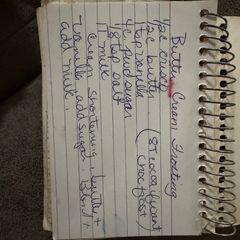 Butter Cream Frosting
1/2 c crisco
1/2 c butter (8 T cocoa if want
1 tsp vanilla chocolate)
4 c powd sugar
1/8 tsp salt
1 T milk
Cream shortening, butter +
vanilla, add sugar. Blend,
add milk.